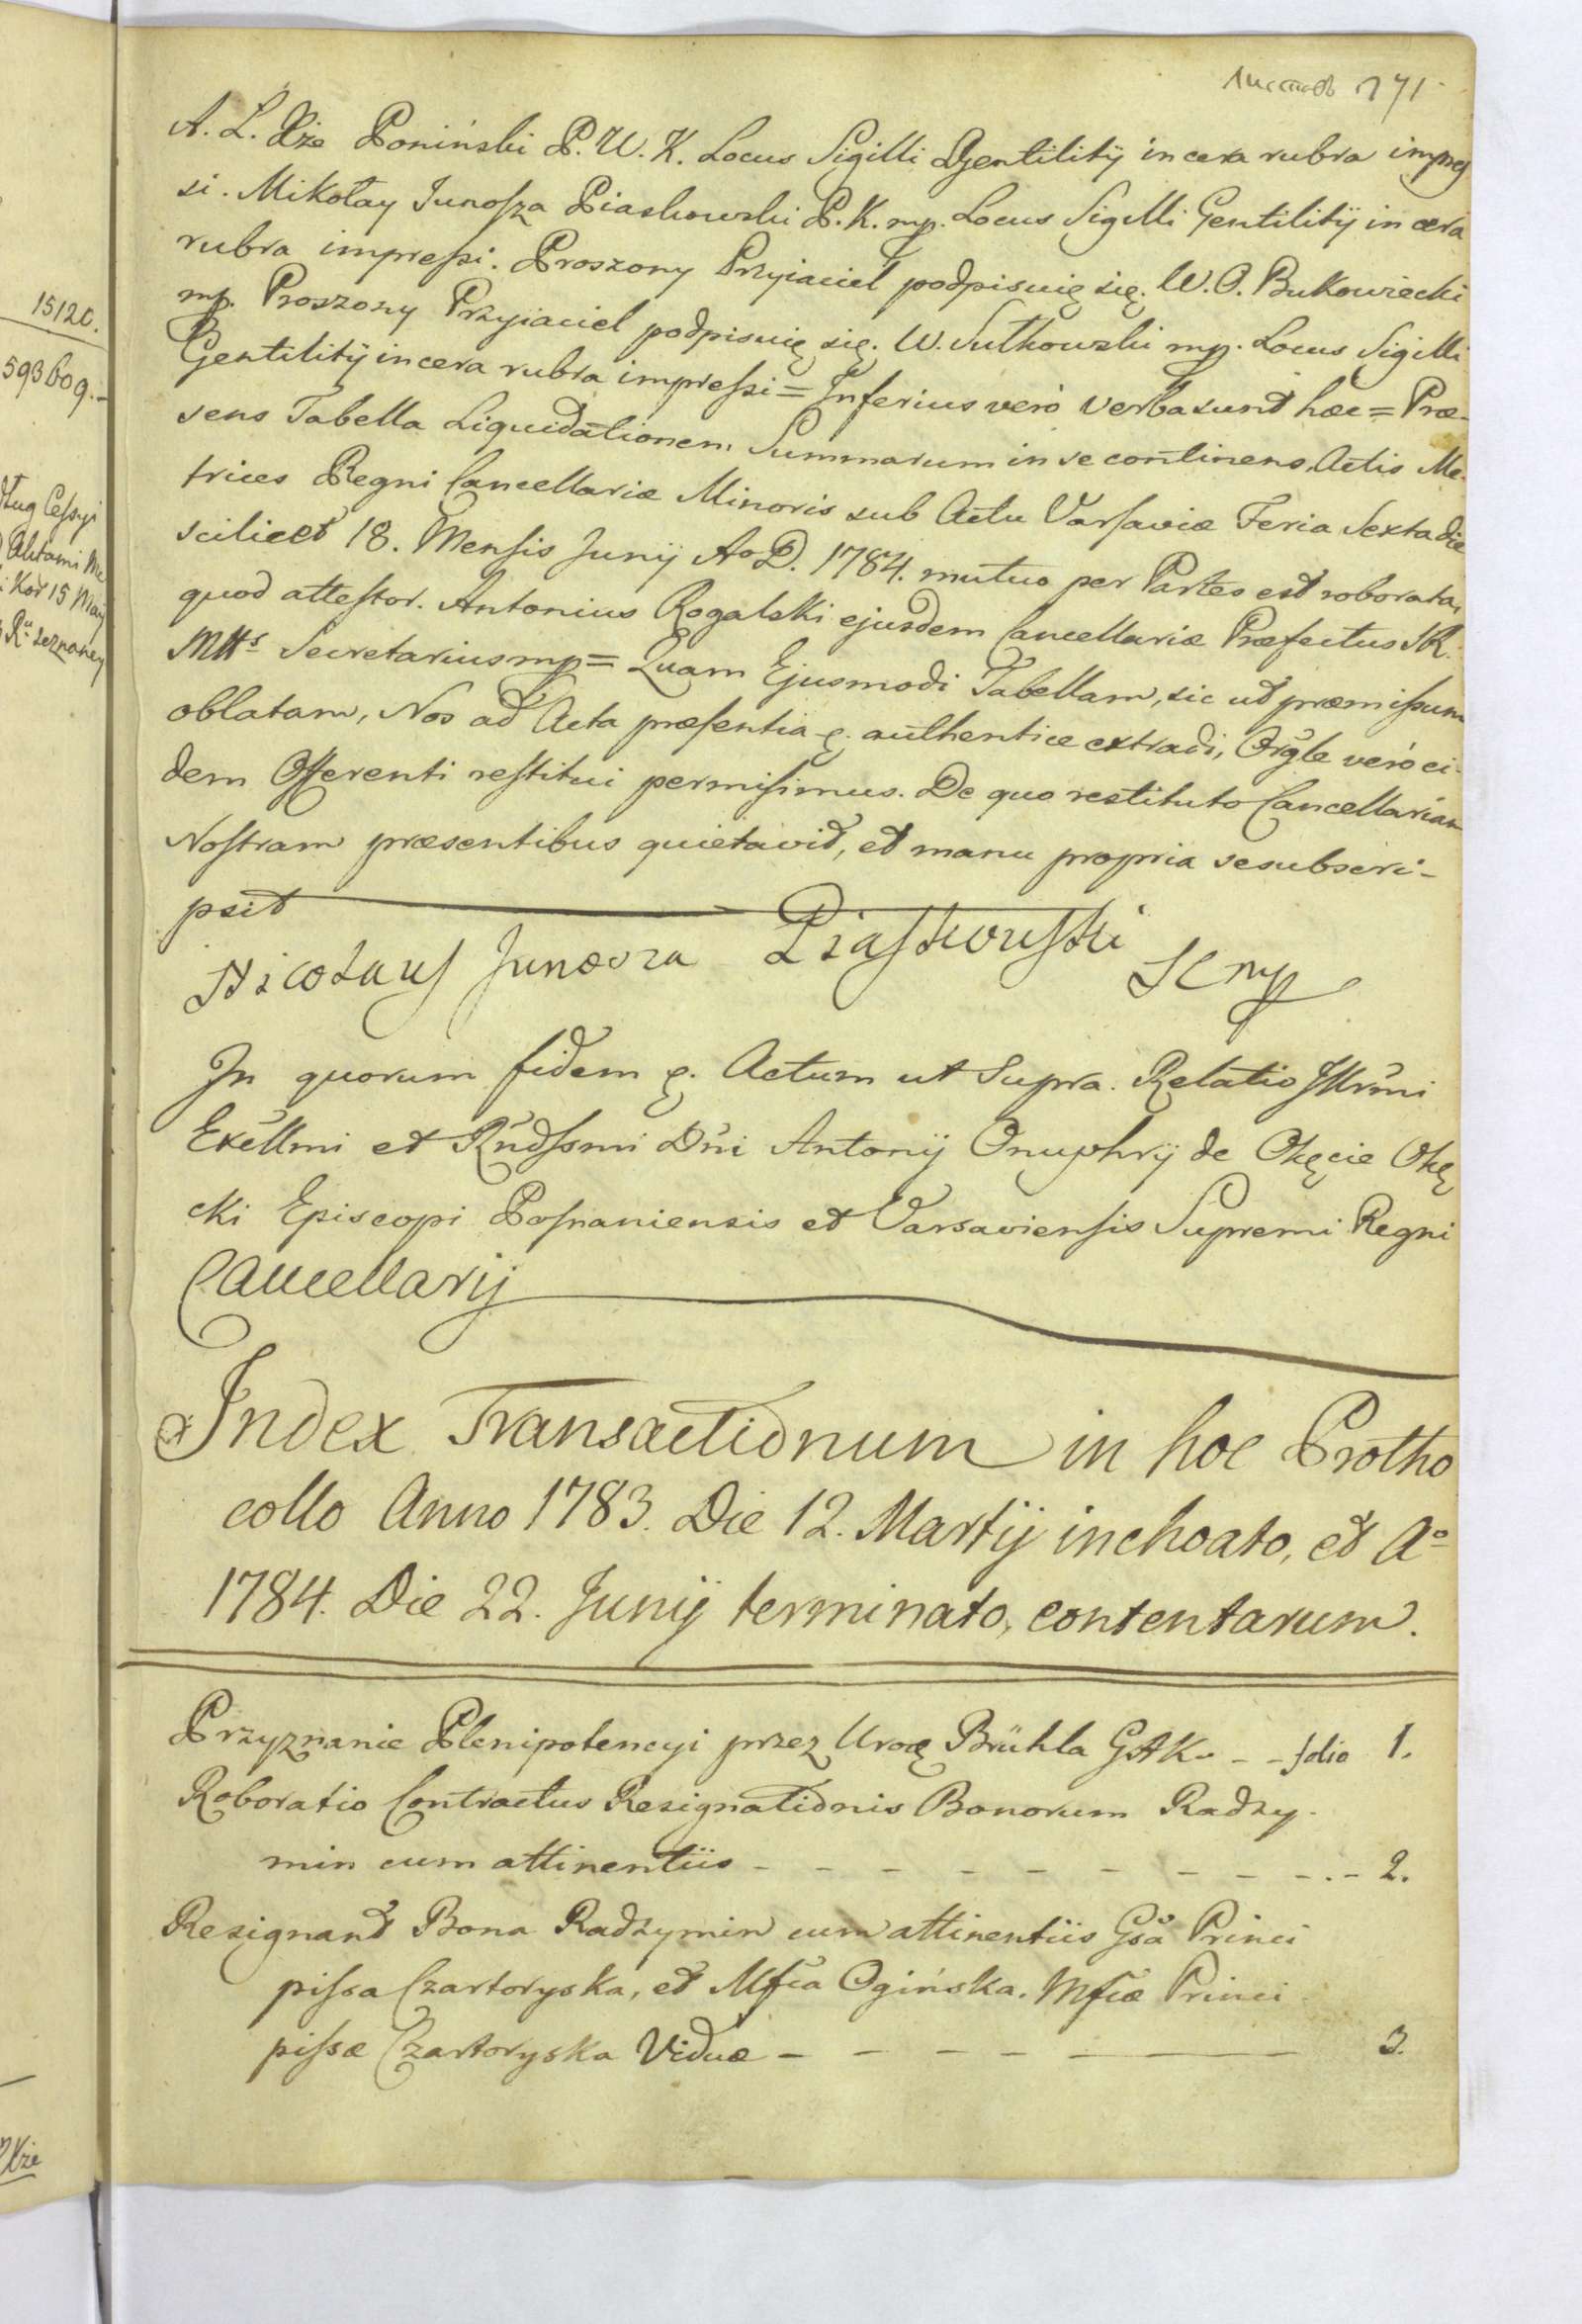 Листовъ 171
A. L. Xże Poniński P. W. K. Locus Sigilli Gentilitij in cera rubra impres
si. Mikołay Junosza Piaskowski P. K. mp. Locus Sigilli Gentilitij in cera
rubra impressi. Proszony Przyiaciel podpisuię się. W. O. Bukowiecki
mp. Proszony Przyiaciel podpisuię się. W. Sułkowski mp. Locus Sigilli
Gentilitij in cera rubra impressi = Inferius verò verba sunt hæc = Præ-
sens Tabella Liquidationem Summarum in se continens, Actis Me-
trices Regni Cancellariæ Minoris sub Actu Varsaviæ Feria Sexta die
scilicet 18. Mensis Junij A. D. 1784. mutuo per Partes est roborata,
quod attestor. Antonius Rogalski ejusdem Cancellariæ Præfectus SR.
Mttis Secretarius mp = Quam Ejusmodi Tabellam, sic ut præmissum
oblatam, Nos ad Acta præsentia et authentice extradi, Orgle verò ei-
dem Offerenti restitui permisimus. De quo restituto Cancellariam
Nostram præsentibus quietavit, et manu propria se subscri-
psit
Nicolaus Junosza Piaskowski SC mp
In quorum fidem et. Actum ut Supra. Relatio Illrmi
Exellmi et Rndssmi Dni Antonij Onuphrij de Okęcie Okę
cki Episcopi Posnaniensis et Varsaviensis Supremi Regni
Cancellarij
Index Transactionum in hoc Protho
collo Anno 1783. Die 12. Martij inchoato, et Ao
1784. Die 22. Junij terminato, contentarum.
Przyznanie Plenipotencyi przez Urogę Brühla GAK. - - folio 1.
Roboratio Contractus Resignationis Bonorum Radzy-
min cum attinentiis - - - - - - - - - - 2.
Resignant Bona Radzymin cum attinentiis Gsa Princi
pissa Czartoryska, et Mfca Ogińska. Mfcæ Princi
pissæ Czartoryska Viduæ - - - - - - 3.
15120.
593609.-
dług Cessyi
Aktami Me
i Kor 15 Maij
Ru zeznaney
Xże